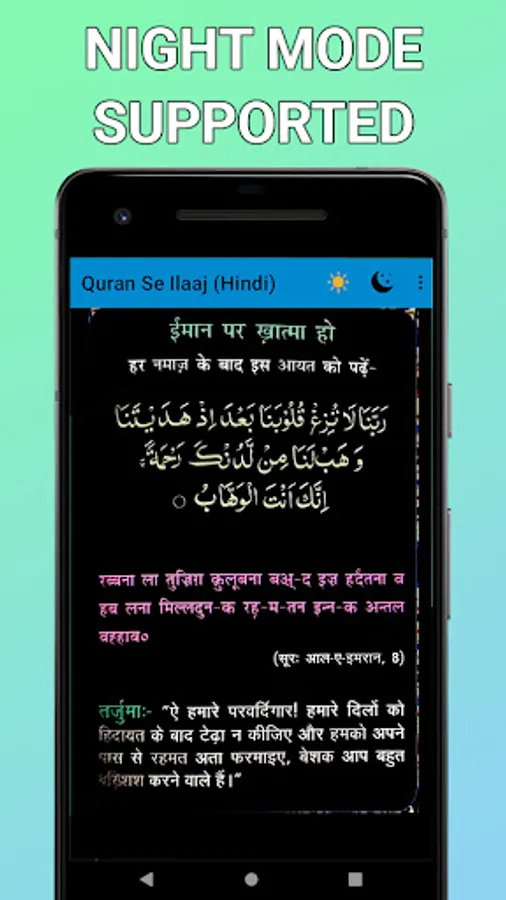 NIGHT MODE
SUPPORTED
Quran Se Ilaaj (Hindi)
ईमान पर ख़ात्मा हो
हर नमाज़ के बाद इस आयत को पढ़ें-
رَبَّنَا لَا تُزِغْ قُلُوْبَنَا بَعْدَ اِذْ هَدَيْتَنَا
وَهَبْ لَنَا مِنْ لَّدُنْكَ رَحْمَةً ۚ
اِنَّكَ اَنْتَ الْوَهَّابُ ○
रब्बना ला तुज़िग़ क़ुलूबना बअ्-द इज़ हदैतना व
हब लना मिल्लदुन-क रह़-म-तन इन्न-क अन्तल
वह्हाब०
(सूरः आल-ए-इमरान, 8)
तर्जुमाः- “ऐ हमारे परवर्दिगार! हमारे दिलों को
हिदायत के बाद टेढ़ा न कीजिए और हमको अपने
पास से रहमत अता फरमाइए, बेशक आप बहुत
बख़्शिश करने वाले हैं।”